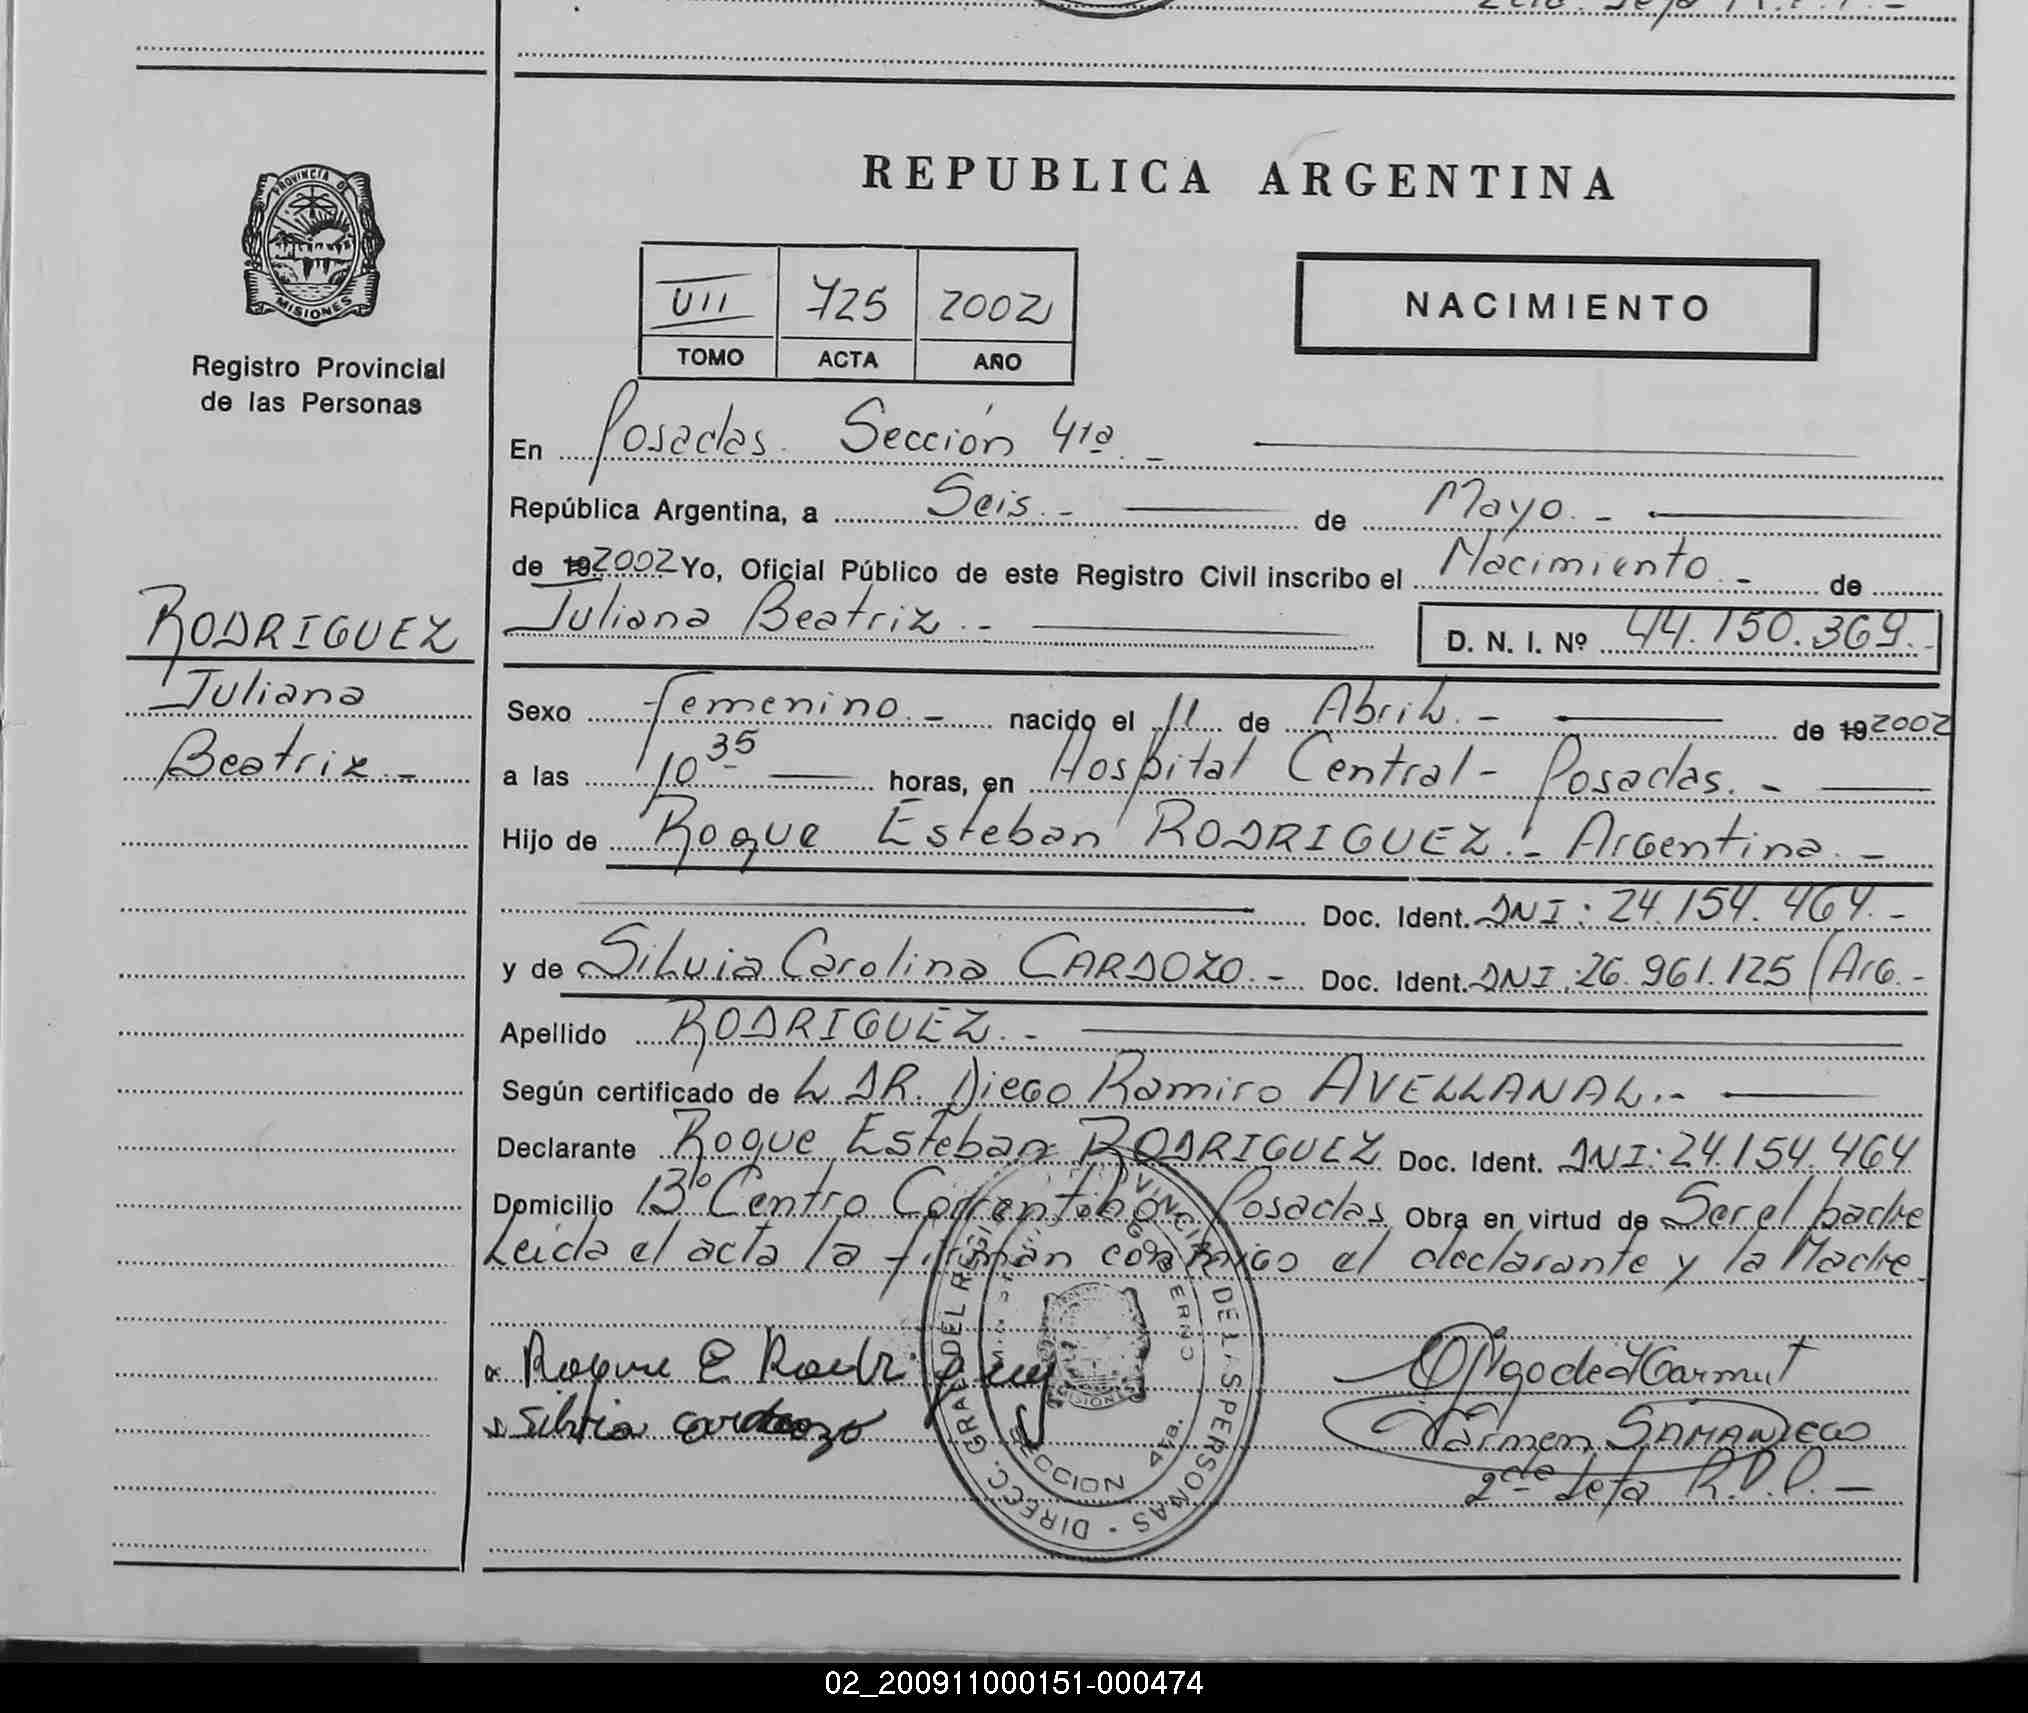 REPUBLICA ARGENTINA
PROVINCIA DE
MISIONES
Registro Provincial
de las Personas
VII 725 2002
TOMO ACTA AÑO
NACIMIENTO
En Posadas. Sección 4ta. -
República Argentina, a Seis. - de Mayo. -
de 19 2002 Yo, Oficial Público de este Registro Civil inscribo el Nacimiento. - de
Juliana Beatriz. - D. N. I. Nº 44.150.369.-
RODRIGUEZ
Juliana
Beatriz. -
Sexo Femenino. - nacido el 11 de Abril. - de 19 2002
a las 10 35 horas, en Hospital Central - Posadas. -
Hijo de Roque Esteban RODRIGUEZ. - Argentina. -
Doc. Ident. DNI: 24.154.464. -
y de Silvia Carolina CARDOZO. - Doc. Ident. DNI: 26.961.125 / Arg. -
Apellido RODRIGUEZ. -
Según certificado de L DR. Diego Ramiro AVELLANAL. -
Declarante Roque Esteban RODRIGUEZ Doc. Ident. DNI: 24.154.464
Domicilio Bº Centro Correntino Posadas Obra en virtud de Ser el padre
Leida el acta la firman conmigo el declarante y la Madre.
Roque E Rodriguez
Silvia Cardozo
Carmen SAMANIEGO
2da Jefa R.P.P. -
DIRECC. GRAL DEL REGI DE LAS PERSONAS
SECCION 4ta.
02_200911000151-000474